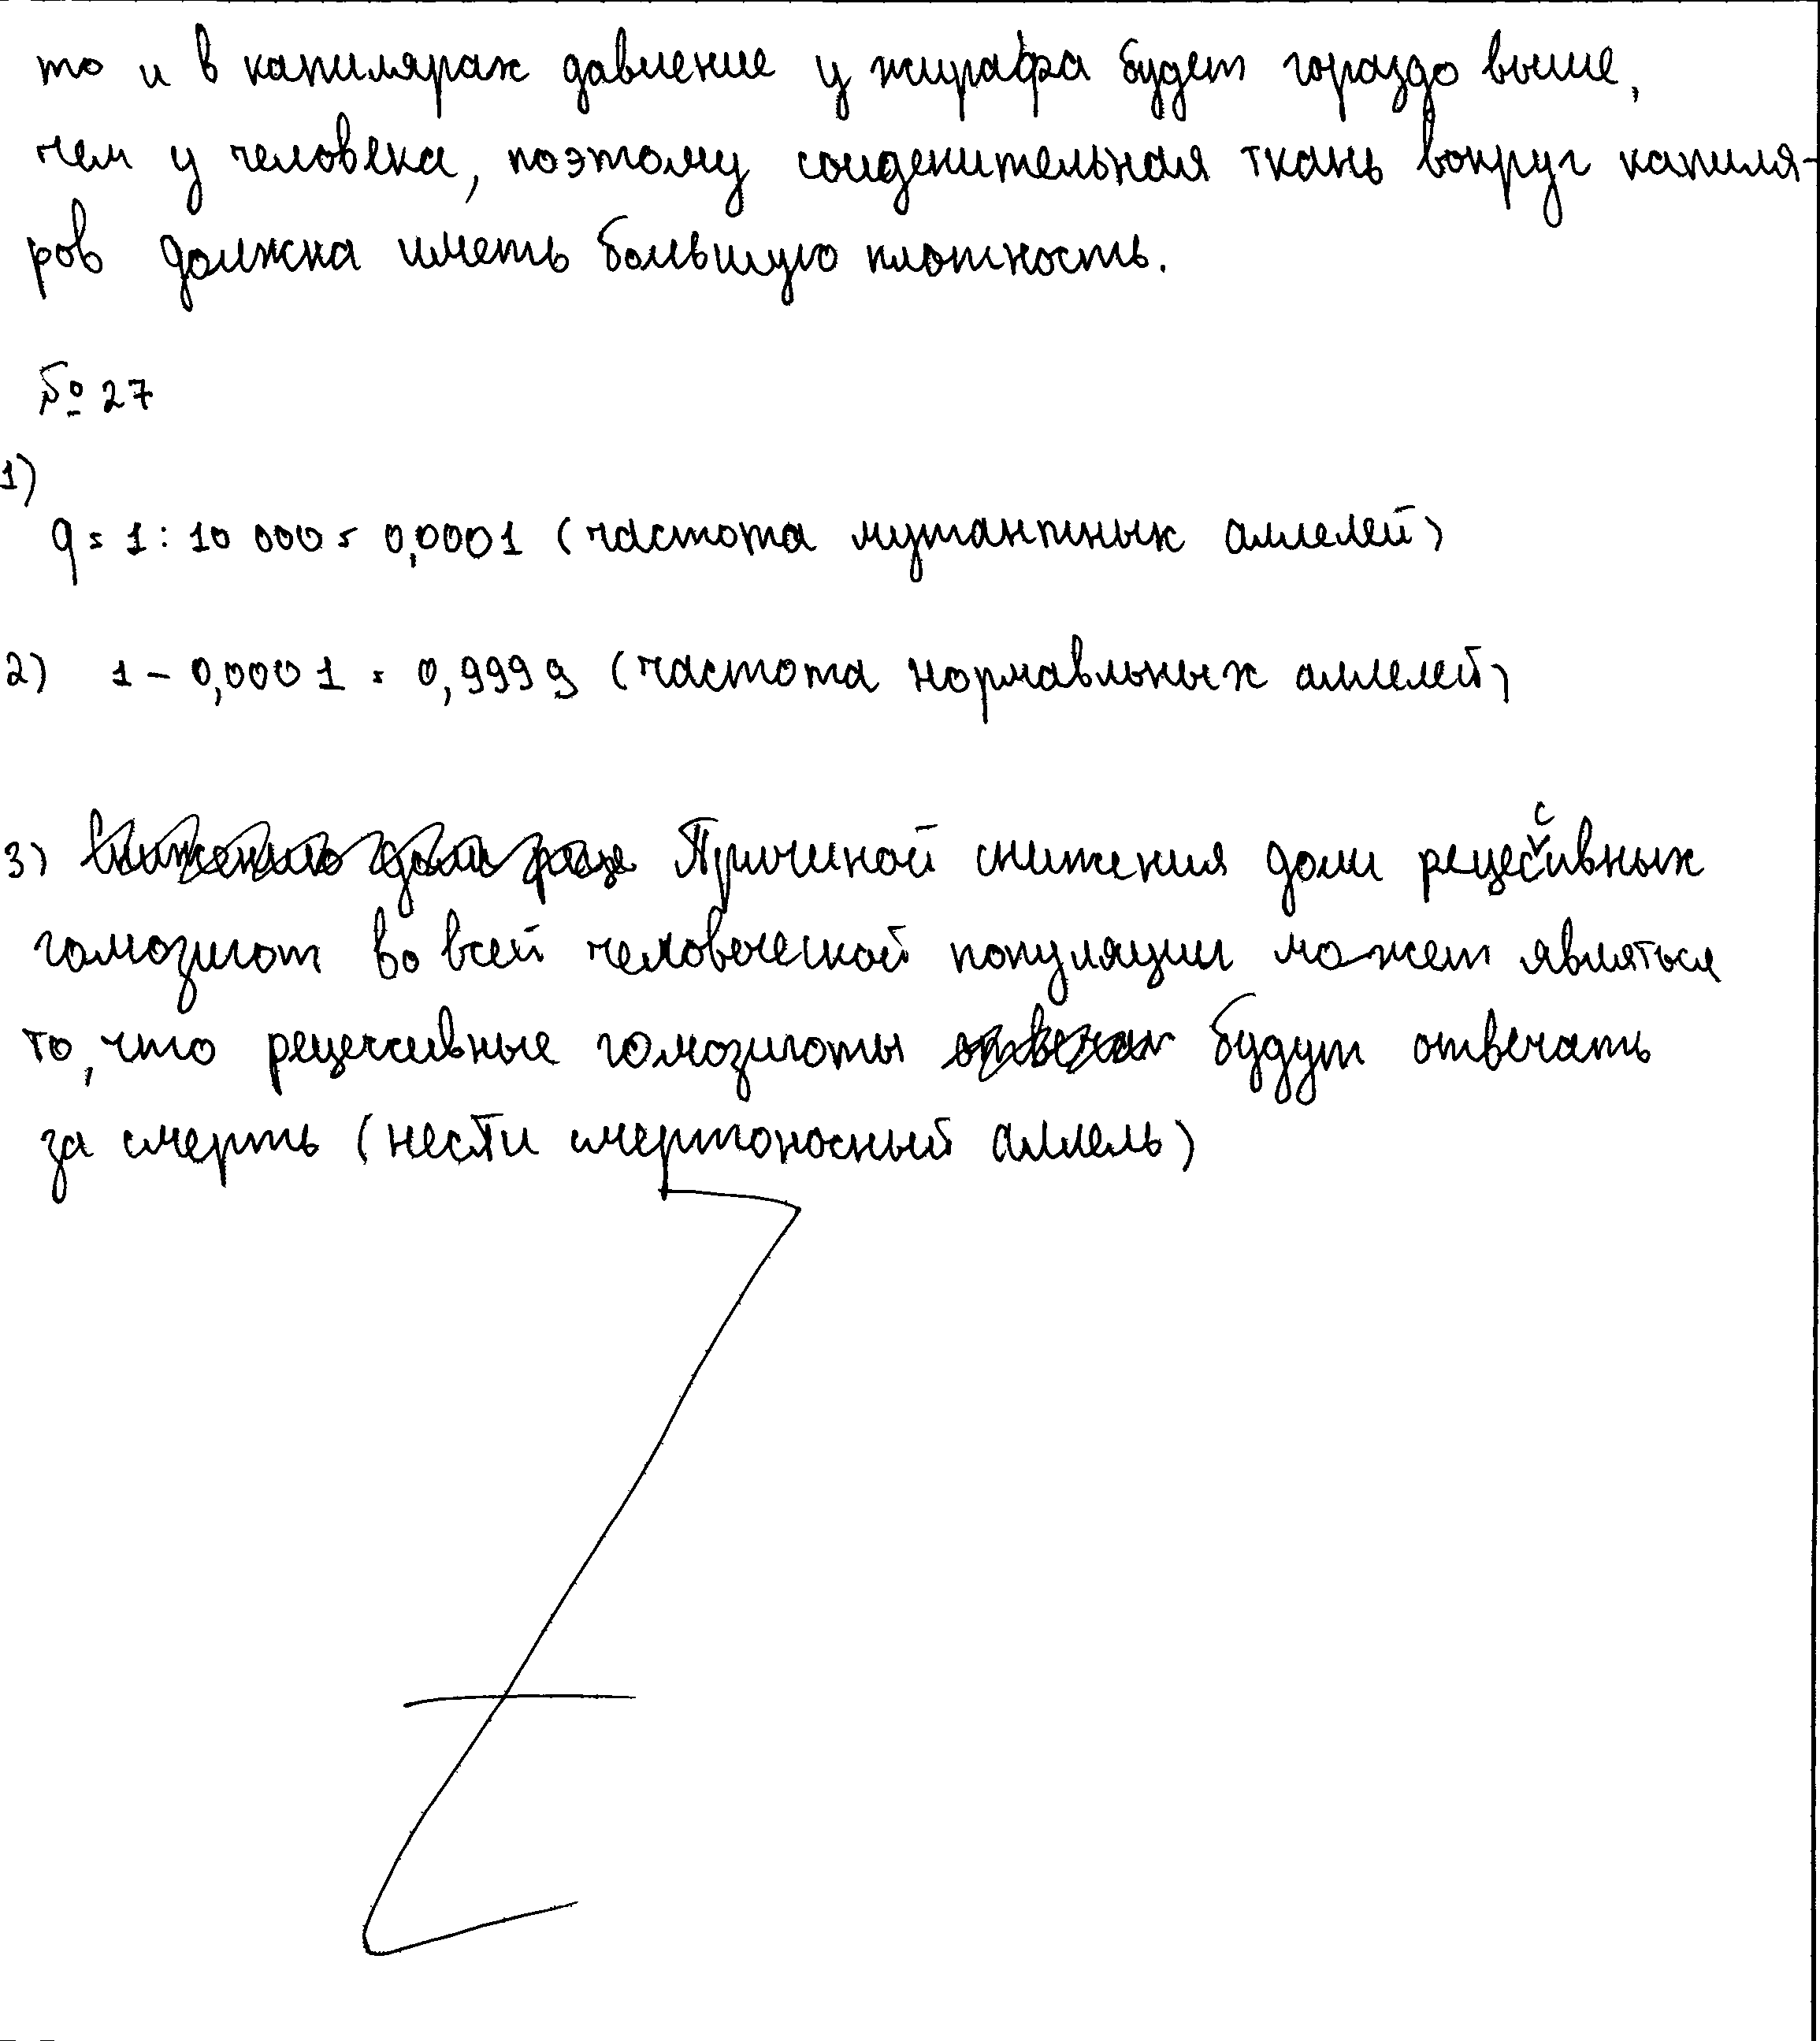 то и в капилярах давление у жирафа будет гораздо выше,
чем у человека, поэтому соиденительная ткань вокруг капиля-
ров должна иметь большую плотность.
№ 27
1)
q = 1 : 10 000 = 0,0001 (частота мутантных аллелей)
2) 1 – 0,0001 = 0,9999 (частота нормавльных аллелей)
3) Причиной снижения доли рецессивных
гомозигот во всей человеческой популяции может являться
то, что рецессивные гомозиготы будут отвечать
за смерть (нести смертоносный аллель)